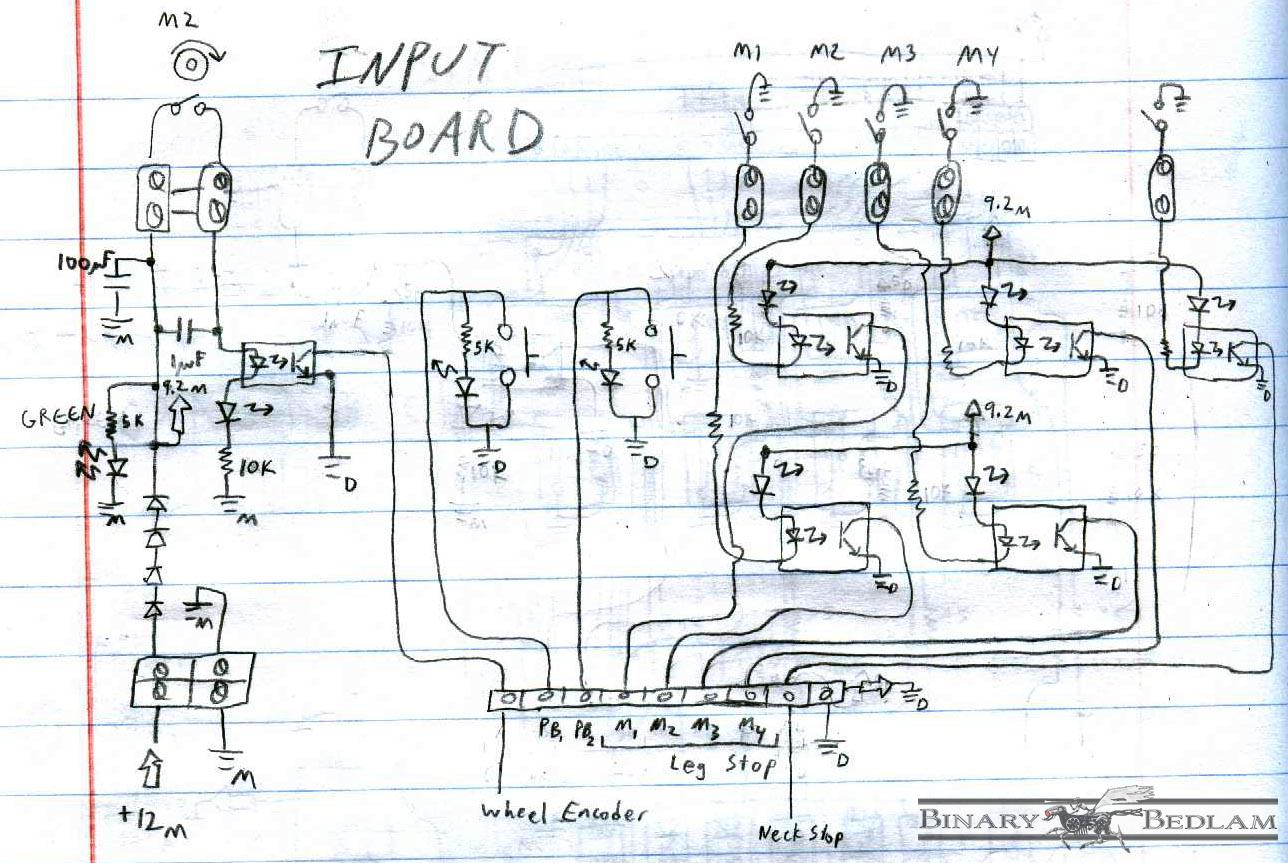 M2
INPUT
BOARD
M1 M2 M3 M4
9.2M
100µF
M
1µF
9.2M
GREEN
5K
M
10K
M
D
5K
D
5K
D
D
D
D
9.2M
D
D
M
M
+12M
PB1 PB2 M1 M2 M3 M4
D
D
Leg Stop
Wheel Encoder
Neck Stop
BINARY BEDLAM